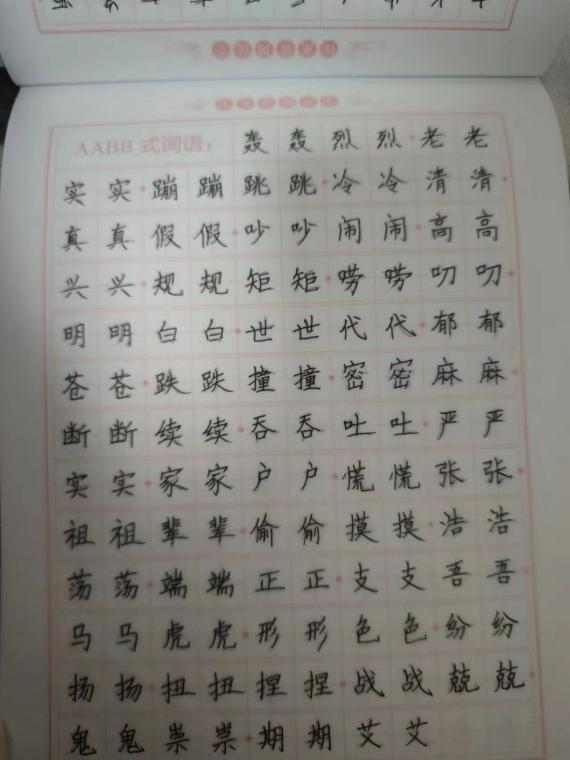 AABB 式词语：轰轰烈烈·老老
实实·蹦蹦跳跳·冷冷清清·
真真假假·吵吵闹闹·高高
兴兴·规规矩矩·唠唠叨叨·
明明白白·世世代代·郁郁
苍苍·跌跌撞撞·密密麻麻·
断断续续·吞吞吐吐·严严
实实·家家户户·慌慌张张·
祖祖辈辈·偷偷摸摸·浩浩
荡荡·端端正正·支支吾吾·
马马虎虎·形形色色·纷纷
扬扬·扭扭捏捏·战战兢兢·
鬼鬼祟祟·期期艾艾